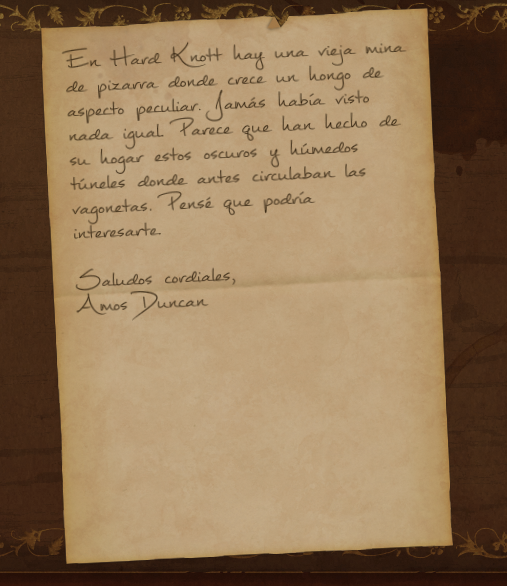 En Hard Knott hay una vieja mina
de pizarra donde crece un hongo de
aspecto peculiar. Jamás había visto
nada igual Parece que han hecho de
su hogar estos oscuros y húmedos
túneles donde antes circulaban las
vagonetas. Pensé que podría
interesarte.
Saludos cordiales,
Amos Duncan